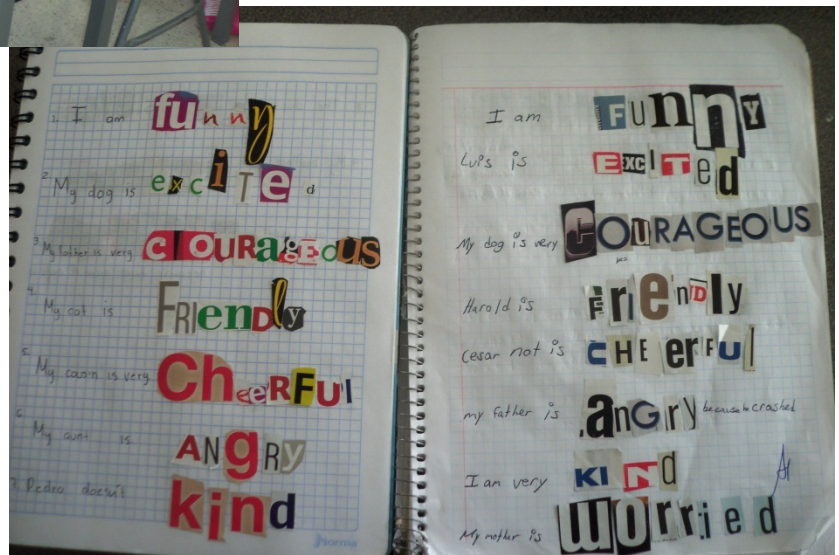 1. I am funny
2. My dog is exciTed
3. My father is very cOURageous
4. My cat is FRIendly
5. My cousin is very CheeRFUl
6. My aunt is ANgRy
7. Pedro doesn't kind
Norma
I am FunnY
Luis is ExCITed
My dog is very COuRAGEOUS
Harold is FrIenDly
Cesar not is CHEerFUl
my father is anGry because he crashed
I am very KINd
My mother is worried